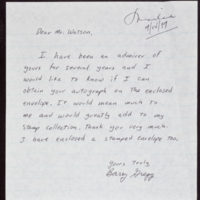 9/10/89
Dear Mr. Watson,
I have been an admirer of
yours for several years and I
would like to know if I can
obtain your autograph on the enclosed
envelope. It would mean much to
me and would greatly add to my
stamp collection. Thank you very much
I have enclosed a stamped envelope too.
Yours truly
Gregg